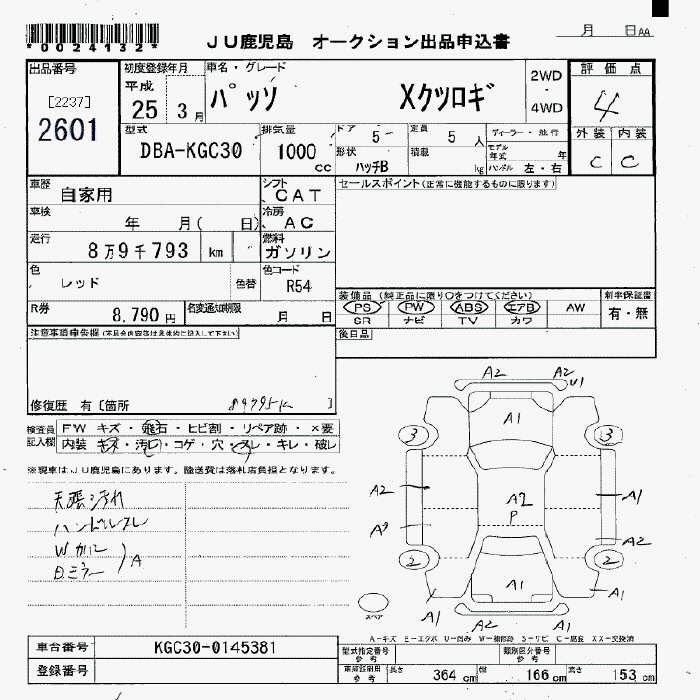 *0024132*
JU鹿児島 オークション出品申込書
月 日AA
出品番号
[2237]
2601
初度登録年月
平成
25 3月
車名・グレード
パッソ Xクツロギ
2WD
・
4WD
評価点
4
外装 内装
C C
型式
DBA-KGC30
排気量
1000 cc
ドア 5
定員 5 人
形状 ハッチB
積載 kg
ディーラー・並行
モデル年式 年
ハンドル 左・右
車歴
自家用
シフト
CAT
車検
年 月( 日)
冷房
AC
走行
8万9千793 km
燃料
ガソリン
色
レッド
色替
色コード
R54
R券
8,790円
名変通知期限
月 日
セールスポイント(正常に機能するものに限ります)
装備品(純正品に限り○をつけてください)
PS PW ABS エアB AW
SR ナビ TV カワ
新車保証書
有・無
注意事項申告欄(不具合内容等は具体的に記入して下さい)
後日品
修復歴 有[箇所 89795K ]
検査員記入欄
FW キズ・飛石・ヒビ割・リペア跡・×要
内装 キズ・汚レ・コゲ・穴・スレ・キレ・破レ
※現車はJU鹿児島にあります。陸送費は落札店負担となります。
天張汚れ
ハンドルスレ
Wカバー
Dミラー
A
A2 A2 U1
A1
3 3
A2
A2
P
A1
A2
2 2
A1
A1 A1
A2 A2
スペア
A-キズ E-エクボ U-凹み W-補修跡 S-サビ C-腐食 XX-交換済
車台番号
KGC30-0145381
登録番号
型式指定番号
参考
類別区分番号
参考
車両証明用
参考
長さ 364 cm
幅 166 cm
高さ 153 cm